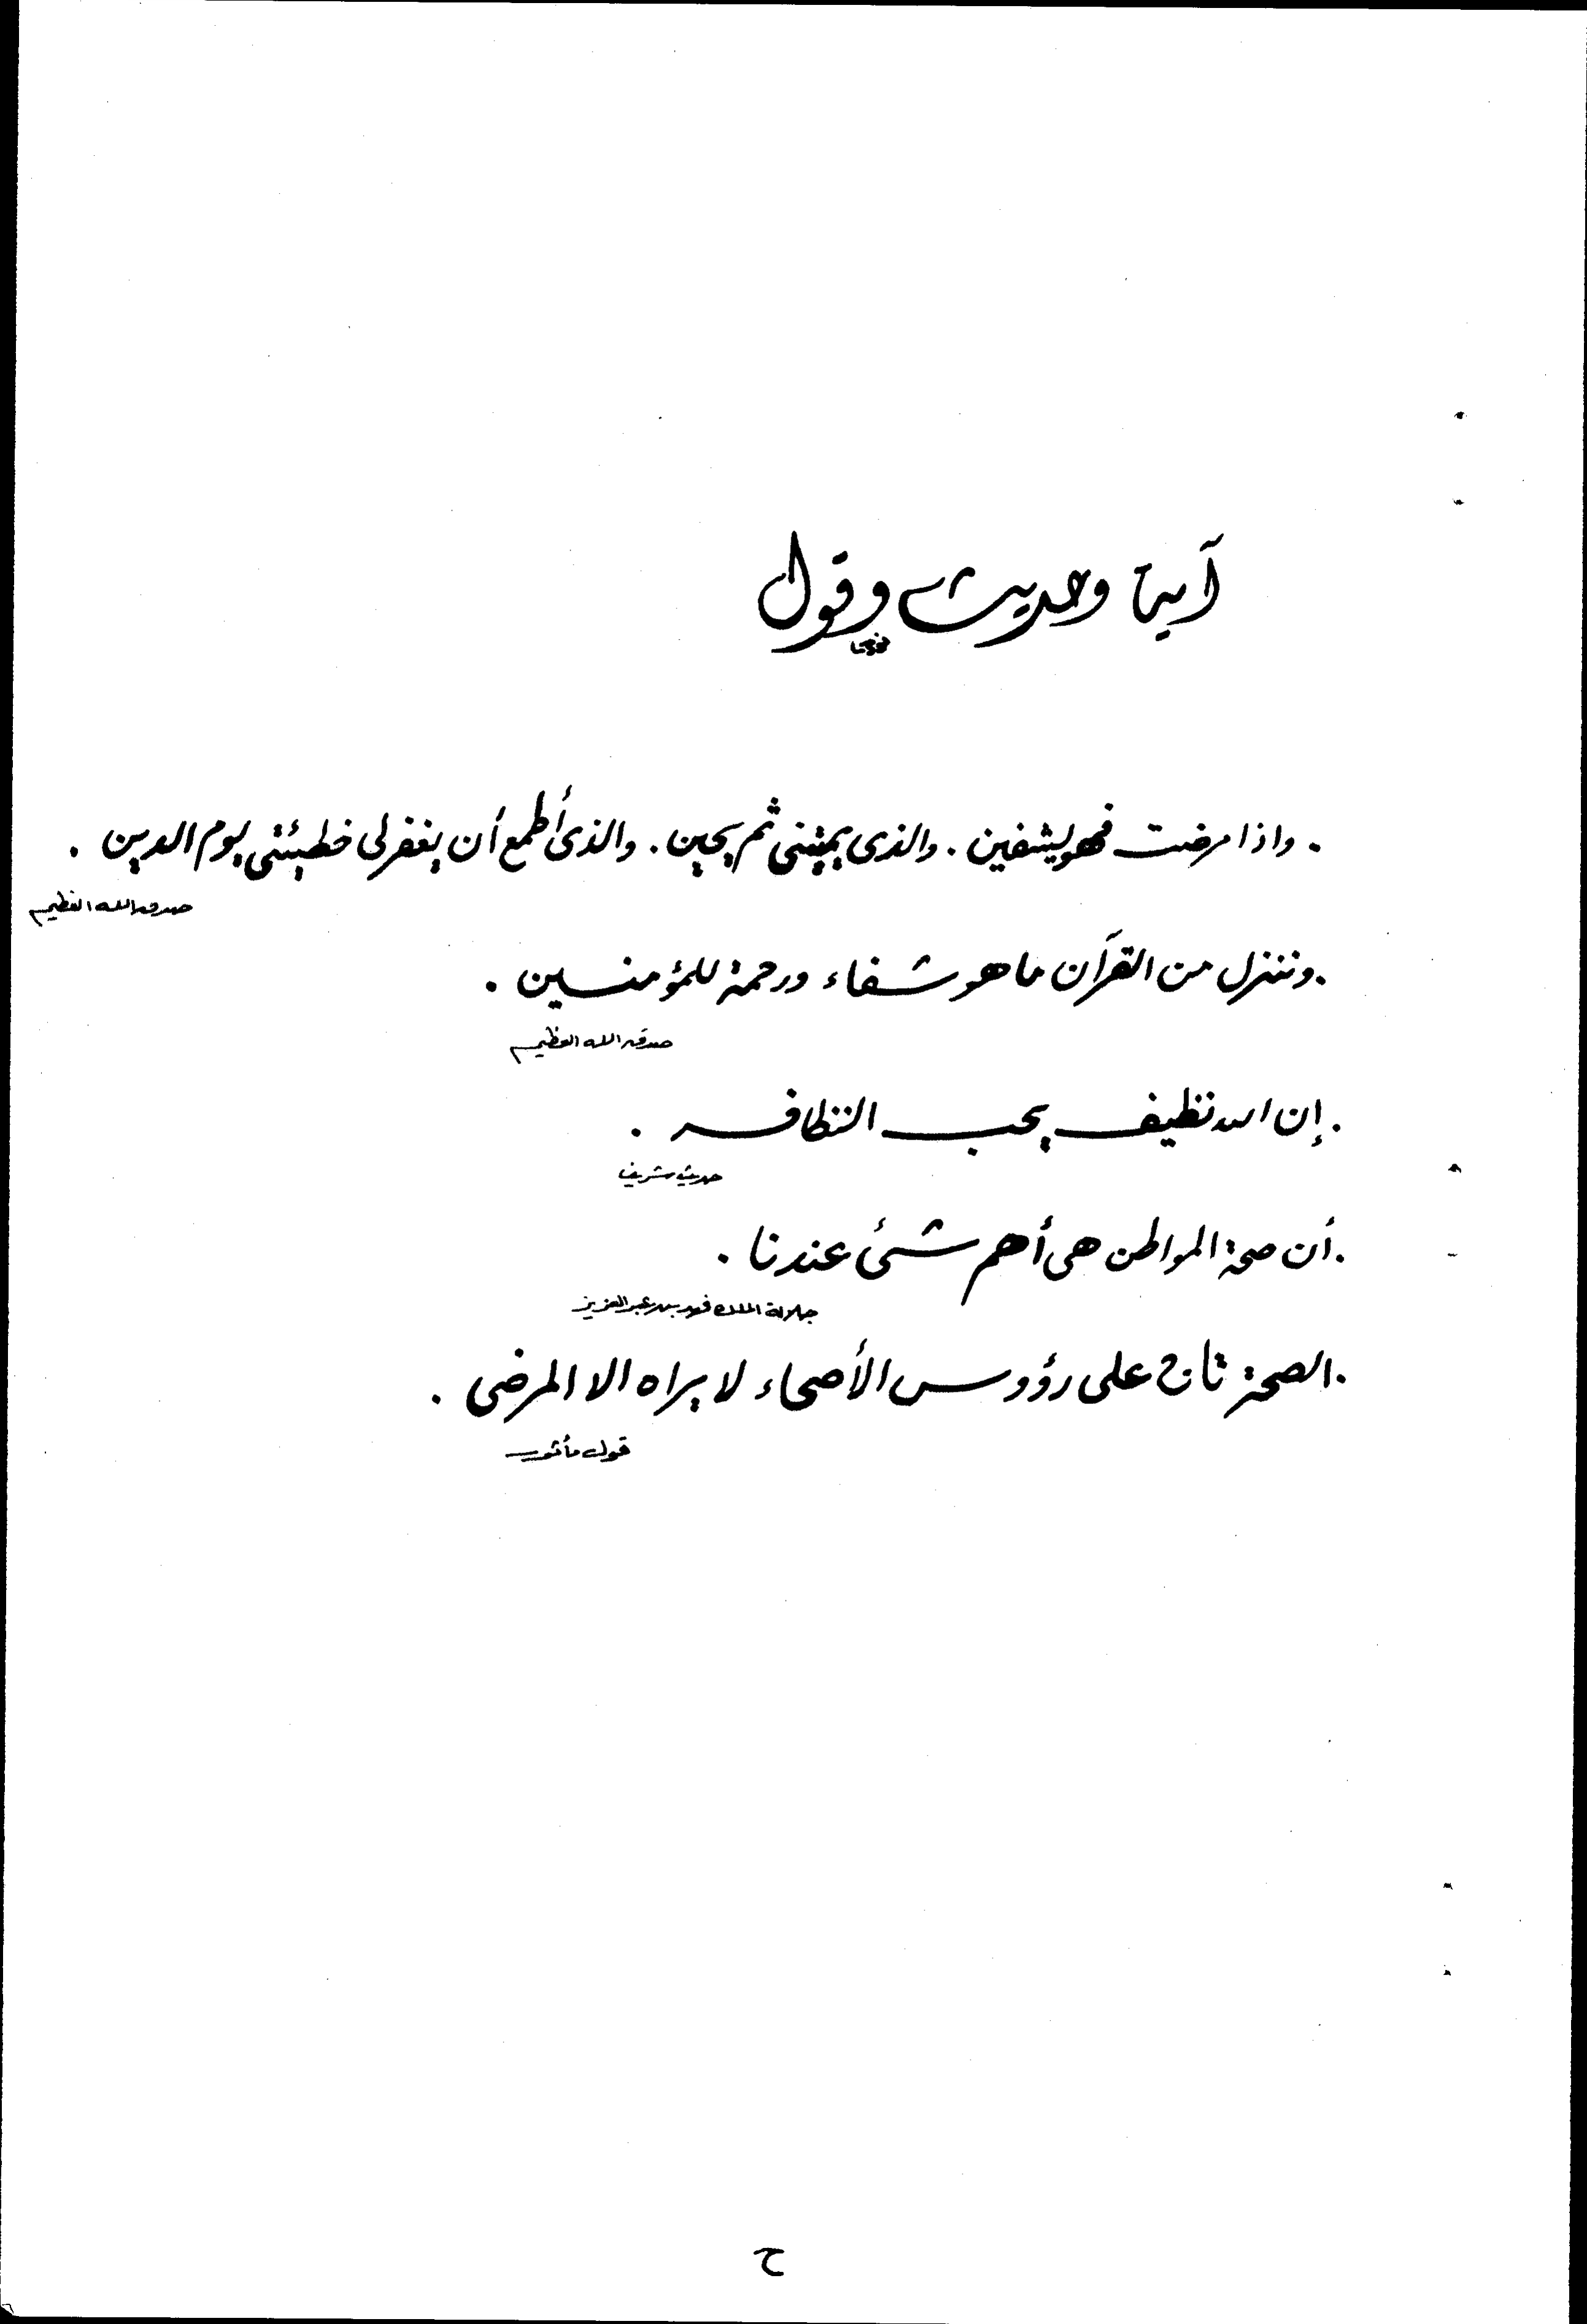 آية وحديث وقول
. واذا مرضت فهو يشفين . والذى يميتنى ثم يحين . والذى أطمع أن يغفر لى خطيئتى يوم الدين .
صدق الله العظيم
. وننزل من القرآن ما هو شفاء ورحمة للمؤمنين .
صدق الله العظيم
. إن الله نظيف يحب النظافه .
حديث شريف
. أن صحة المواطن هى أهم شئ عندنا .
جلالة الملك فهد بن عبد العزيز
. الصحة تاج على رؤوس الأصحاء لا يراه الا المرضى .
قول مأثور
ح